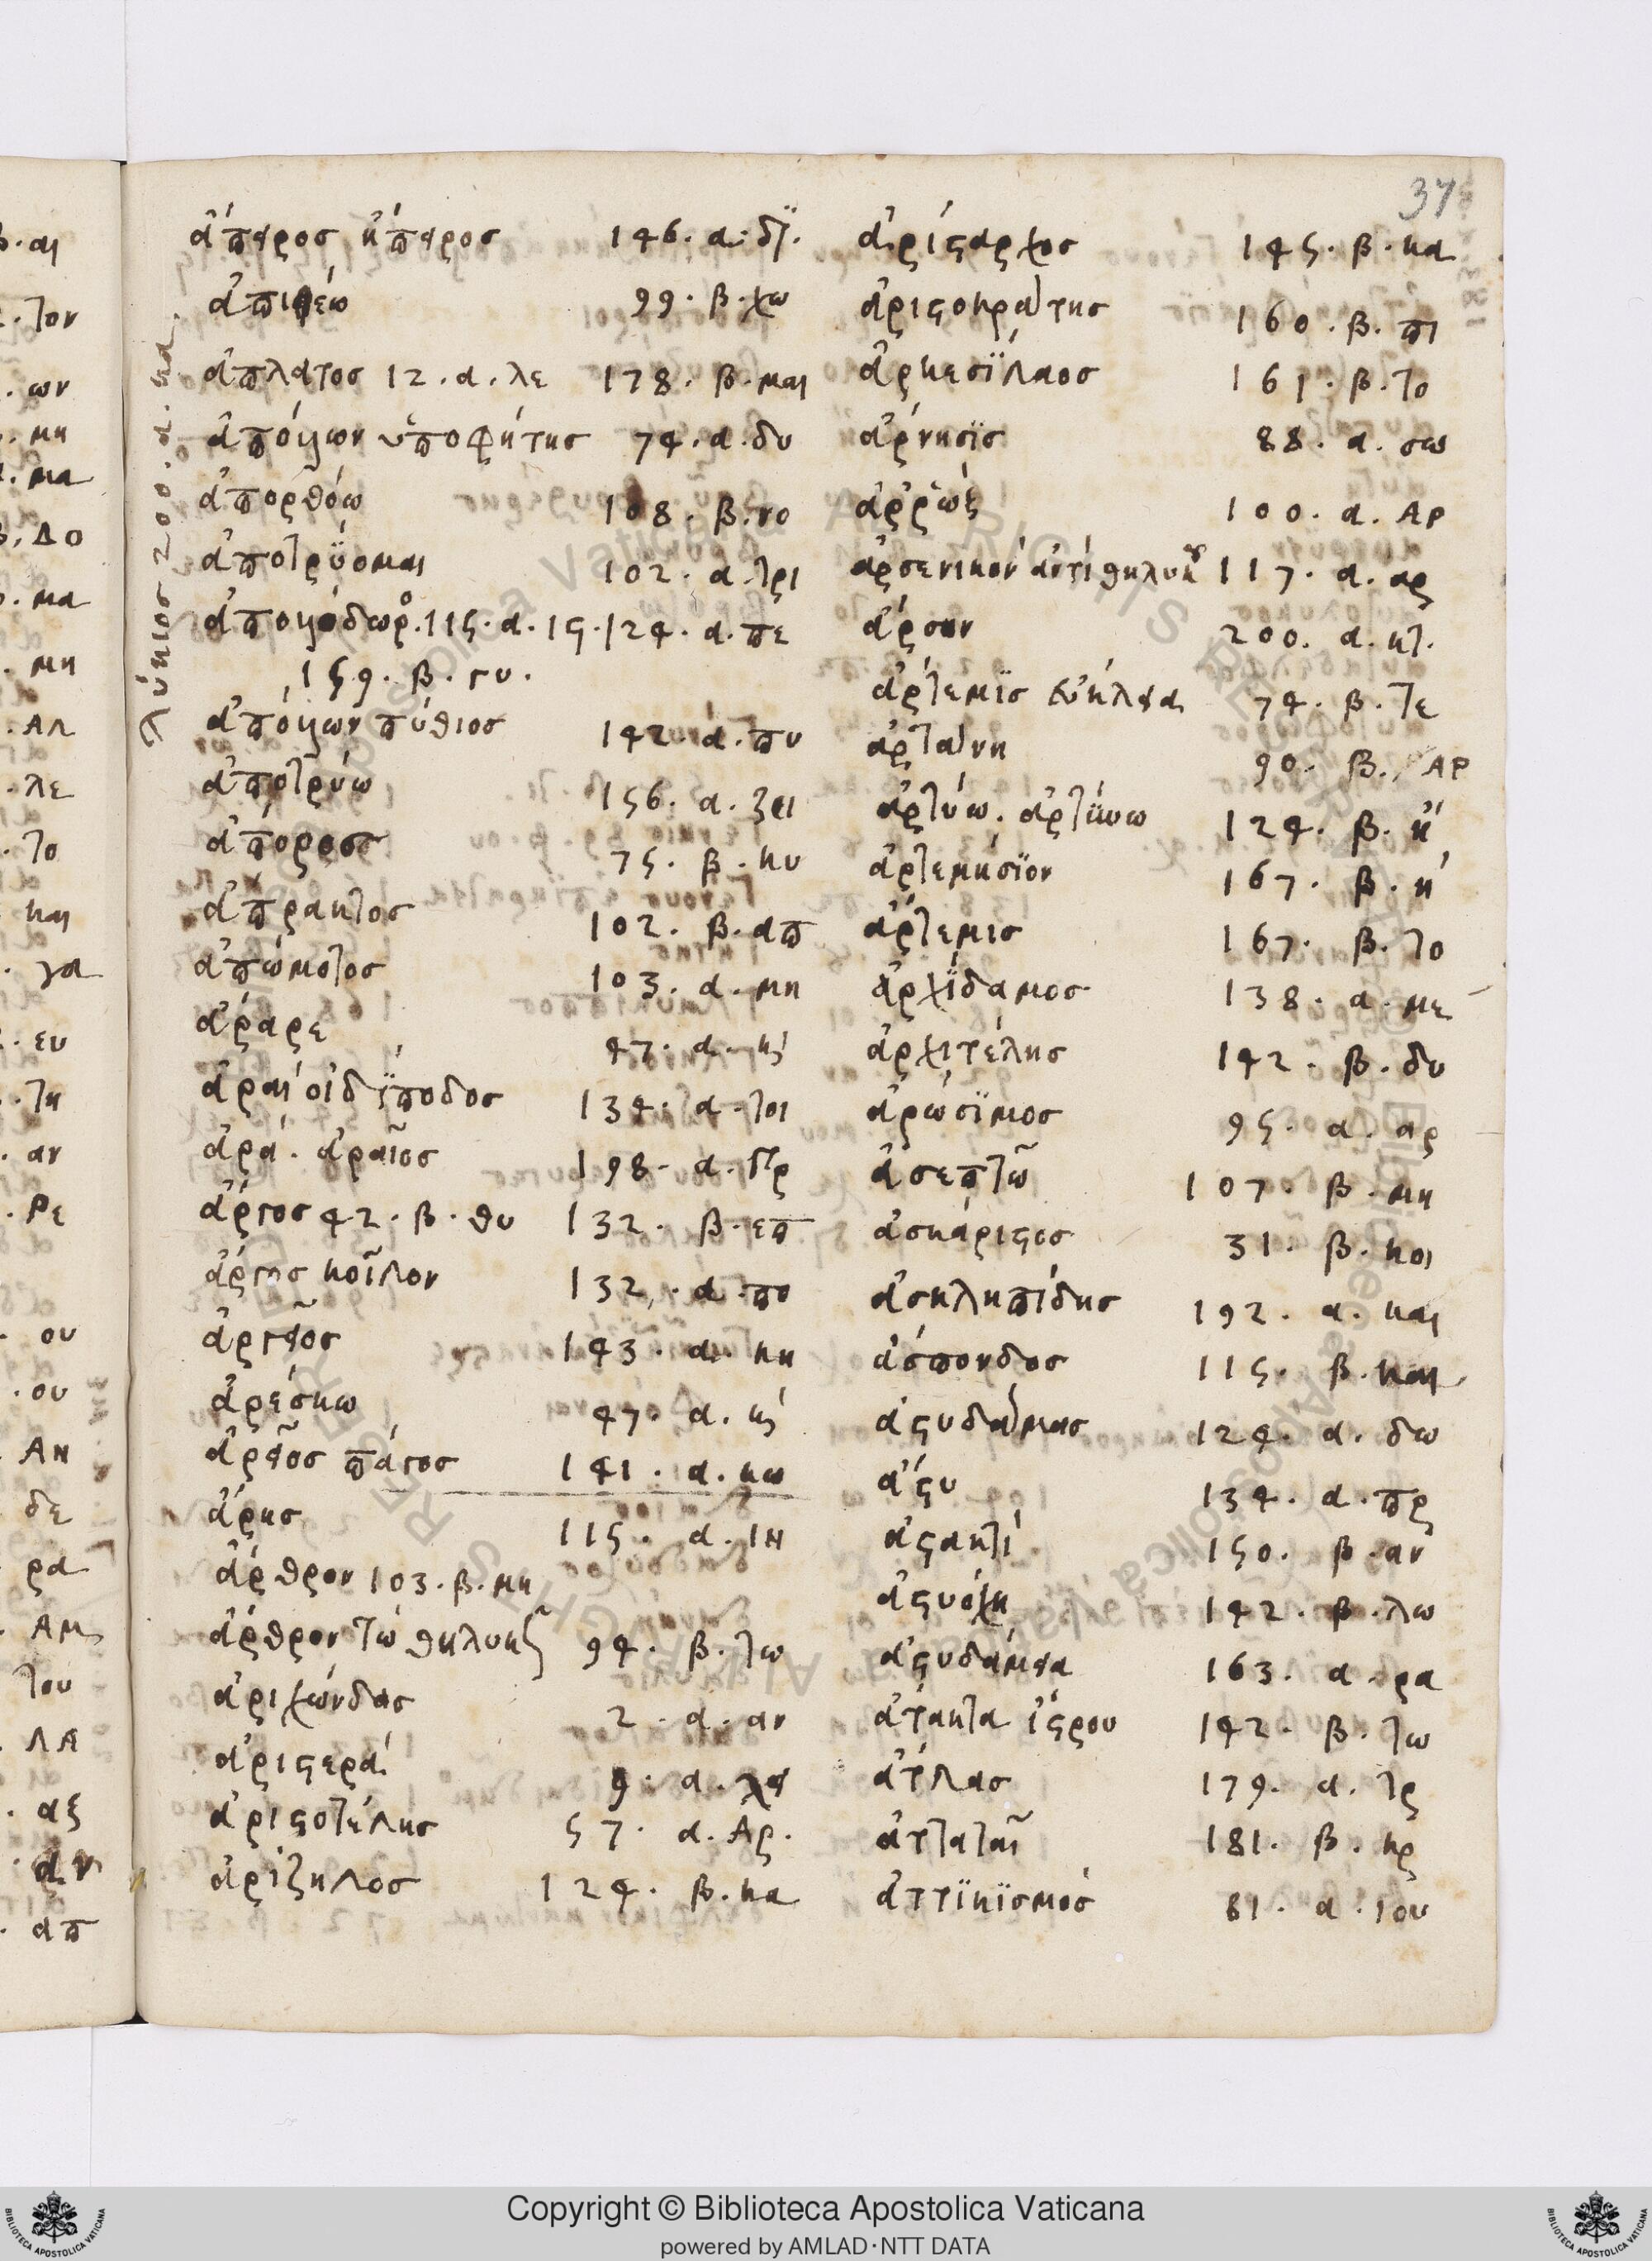 37
ἄπειρος ἤπειρος 146. α. δϊ.
ἀπιθέω 99. β. χω
ἄπλατος 12. α. λε 178. β. μαι
ἀπόλλων ὑποφήτης 74. α. δυ
ἀπορθόω 108. β. νο
ἀποτρύομαι 102. α. τρι
ἀπολλόδωρ. 115. α. 15. 124. α. πε
159. β. γυ.
ἀπόλλων πύθιος 142. α. πυ
ἀποτρύω 156. α. ζει
ἄπορος 75. β. κυ
ἄπρακτος 102. β. απ
ἀπώμοτος 103. α. μη
ἄραρε 47. α.
ἀραί οἰδίποδος 134. α. τοι
ἀρά. ἀραῖος 198. α.
ἄργος 42. β. θυ 132. β. επ
ἄργος κοῖλον 132. α. πο
ἀργεῖος 143. α. κη
ἀρέσκω 47. α.
ἄρειος πάγος 141. α. κω
ἄρης 115. α. ΙΝ
ἄρθρον 103. β. μη
ἄρθρον τῷ θηλυκῷ 94. β. τω
ἀριχώνδας 2. α. αν
ἀριστερά 9. α. χει
ἀριστοτέλης 57. α. Αρ.
ἀρίζηλος 124. β. κα
ἀρίσταρχος 145. β. κα
ἀριστοκράτης 160. β. πι
ἀρκεσίλαος 161. β. το
ἄρνησϊς 88. α. σω
ἀρρὼξ 100. α. ΑΡ
ἀρσενικὸν ἀντὶ θηλυκοῦ 117. α. αρ
ἄρσην 200. α. κτ.
ἄρτεμϊς εὔκλεια 74. β. τε
ἀρτάνη 90. β. ΑΡ
ἀρτύω. ἀρτύνω 124. β. ἤ
ἀρτεμίσϊον 167. β. ἤ
ἄρτεμις 167. β. το
ἀρχίδαμος 138. α. με
ἀρχιτέλης 142. β. δυ
ἀρώσϊμος 95. α. αρ
ἀσεπτῶ 107. β. μη
ἀσκάριστος 31. β. κοι
ἀσκληπίδης 192. α. και
ἄσπονδος 115. β. και
ἀστυδάμας 124. α. δω
ἄστυ 134. α. πρ
ἀστακτί 150. β. αν
ἀστυόχη 142. β. λω
ἀστυδάμεια 163. α. ρα
ἄτακτα ἴστρου 142. β. τω
ἄτλας 179. α. τρ
ἀτταταῖ 181. β. κρ
ἀττϊκϊσμός 81. α. του
λύκιος 200. α. κα.
Copyright © Biblioteca Apostolica Vaticana
powered by AMLAD·NTT DATA